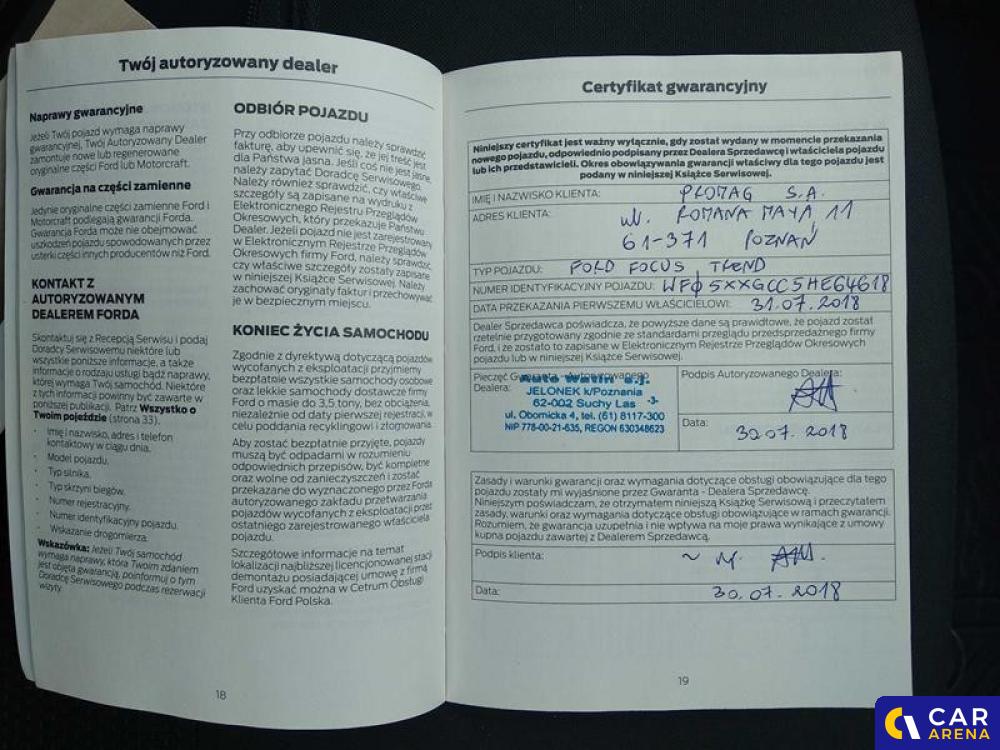 Twój autoryzowany dealer
Naprawy gwarancyjne
Jeżeli Twój pojazd wymaga naprawy
gwarancyjnej, Twój Autoryzowany Dealer
zamontuje nowe lub regenerowane
oryginalne części Ford lub Motorcraft.
Gwarancja na części zamienne
Jedynie oryginalne części zamienne Ford i
Motorcraft podlegają gwarancji Forda.
Gwarancja Forda może nie obejmować
uszkodzeń pojazdu spowodowanych przez
usterki części innych producentów niż Ford.
KONTAKT Z
AUTORYZOWANYM
DEALEREM FORDA
Skontaktuj się z Recepcją Serwisu i podaj
Doradcy Serwisowemu niektóre lub
wszystkie poniższe informacje, a także
informacje o rodzaju usługi bądź naprawy,
której wymaga Twój samochód. Niektóre
z tych informacji powinny być zawarte w
poniższej publikacji. Patrz Wszystko o
Twoim pojeździe (strona 33).
• Imię i nazwisko, adres i telefon
kontaktowy w ciągu dnia.
• Model pojazdu.
• Typ silnika.
• Typ skrzyni biegów.
• Numer rejestracyjny.
• Numer identyfikacyjny pojazdu.
• Wskazanie drogomierza.
Wskazówka: Jeżeli Twój samochód
wymaga naprawy, która Twoim zdaniem
jest objęta gwarancją, poinformuj o tym
Doradcę Serwisowego podczas rezerwacji
wizyty.
ODBIÓR POJAZDU
Przy odbiorze pojazdu należy sprawdzić
fakturę, aby upewnić się, że jej treść jest
dla Państwa jasna. Jeśli coś nie jest jasne,
należy zapytać Doradcę Serwisowego.
Należy również sprawdzić, czy właściwe
szczegóły są zapisane na wydruku z
Elektronicznego Rejestru Przeglądów
Okresowych, który przekazuje Państwu
Dealer. Jeżeli pojazd nie jest zarejestrowany
w Elektronicznym Rejestrze Przeglądów
Okresowych firmy Ford, należy sprawdzić,
czy właściwe szczegóły zostały zapisane
w niniejszej Książce Serwisowej. Należy
zachować oryginalny faktur i przechowywać
je w bezpiecznym miejscu.
KONIEC ŻYCIA SAMOCHODU
Zgodnie z dyrektywą dotyczącą pojazdów
wycofanych z eksploatacji przyjmiemy
bezpłatnie wszystkie samochody osobowe
oraz lekkie samochody dostawcze firmy
Ford o masie do 3,5 tony, bez obciążenia,
niezależnie od daty pierwszej rejestracji, w
celu poddania recyklingowi i złomowania.
Aby zostać bezpłatnie przyjęte, pojazdy
muszą być odpadami w rozumieniu
odpowiednich przepisów, być kompletne
oraz wolne od zanieczyszczeń i zostać
przekazane do wyznaczonego przez Forda
autoryzowanego zakładu przetwarzania
pojazdów wycofanych z eksploatacji przez
ostatniego zarejestrowanego właściciela
pojazdu.
Szczegółowe informacje na temat
lokalizacji najbliższej licencjonowanej stacji
demontażu posiadającej umowę z firmą
Ford uzyskać można w Cetrum Obsługi
Klienta Ford Polska.
18
Certyfikat gwarancyjny
Niniejszy certyfikat jest ważny wyłącznie, gdy został wydany w momencie przekazania
nowego pojazdu, odpowiednio podpisany przez Dealera Sprzedawcę i właściciela pojazdu
lub ich przedstawicieli. Okres obowiązywania gwarancji właściwy dla tego pojazdu jest
podany w niniejszej Książce Serwisowej.
IMIĘ I NAZWISKO KLIENTA: PROMAG S.A.
ADRES KLIENTA: ul. ROMANA MAYA 11
61-371 POZNAŃ
TYP POJAZDU: FORD FOCUS TREND
NUMER IDENTYFIKACYJNY POJAZDU: WF05XXGCC5HE64618
DATA PRZEKAZANIA PIERWSZEMU WŁAŚCICIELOWI: 31.07.2018
Dealer Sprzedawca poświadcza, że powyższe dane są prawidłowe, że pojazd został
rzetelnie przygotowany zgodnie ze standardami przeglądu przedsprzedażnego firmy
Ford, i że zostało to zapisane w Elektronicznym Rejestrze Przeglądów Okresowych
pojazdu lub w niniejszej Książce Serwisowej.
Pieczęć Gwaranta - Autoryzowanego
Dealera:
Auto Watin s.j.
JELONEK k/Poznania
62-002 Suchy Las -3-
ul. Obornicka 4, tel. (61) 8117-300
NIP 778-00-21-635, REGON 630348623
Podpis Autoryzowanego Dealera:
Data:
30.07.2018
Zasady i warunki gwarancji oraz wymagania dotyczące obsługi obowiązujące dla tego
pojazdu zostały mi wyjaśnione przez Gwaranta - Dealera Sprzedawcę.
Niniejszym poświadczam, że otrzymałem niniejszą Książkę Serwisową i przeczytałem
zasady, warunki oraz wymagania dotyczące obsługi obowiązujące w ramach gwarancji.
Rozumiem, że gwarancja uzupełnia i nie wpływa na moje prawa wynikające z umowy
kupna pojazdu zawartej z Dealerem Sprzedawcą.
Podpis klienta:
Data: 30.07.2018
19
CAR
ARENA